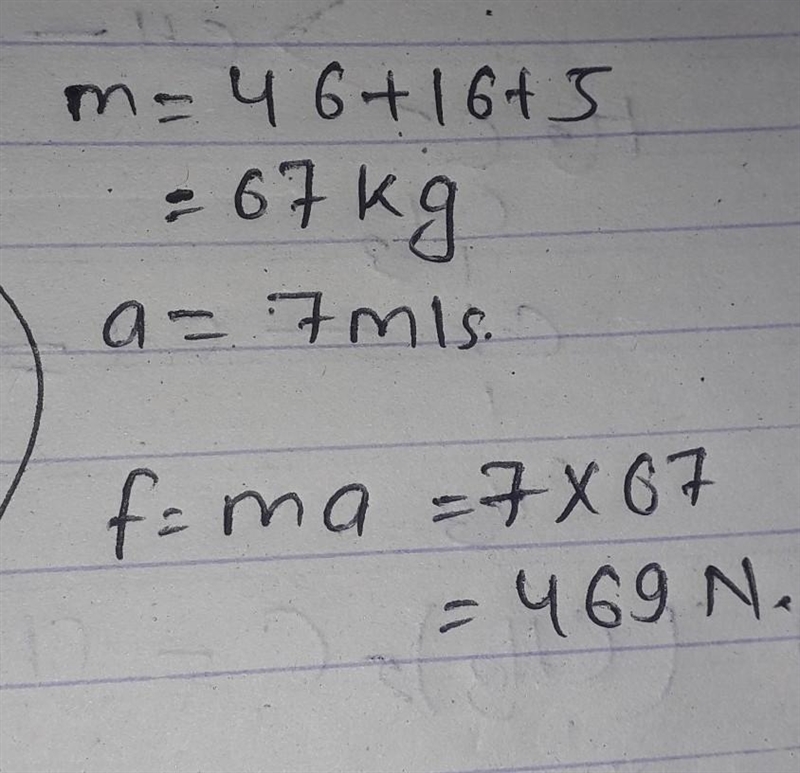 m = 46+16+5
= 67 kg
a = 7 m/s.
f = ma = 7 × 67
= 469 N.